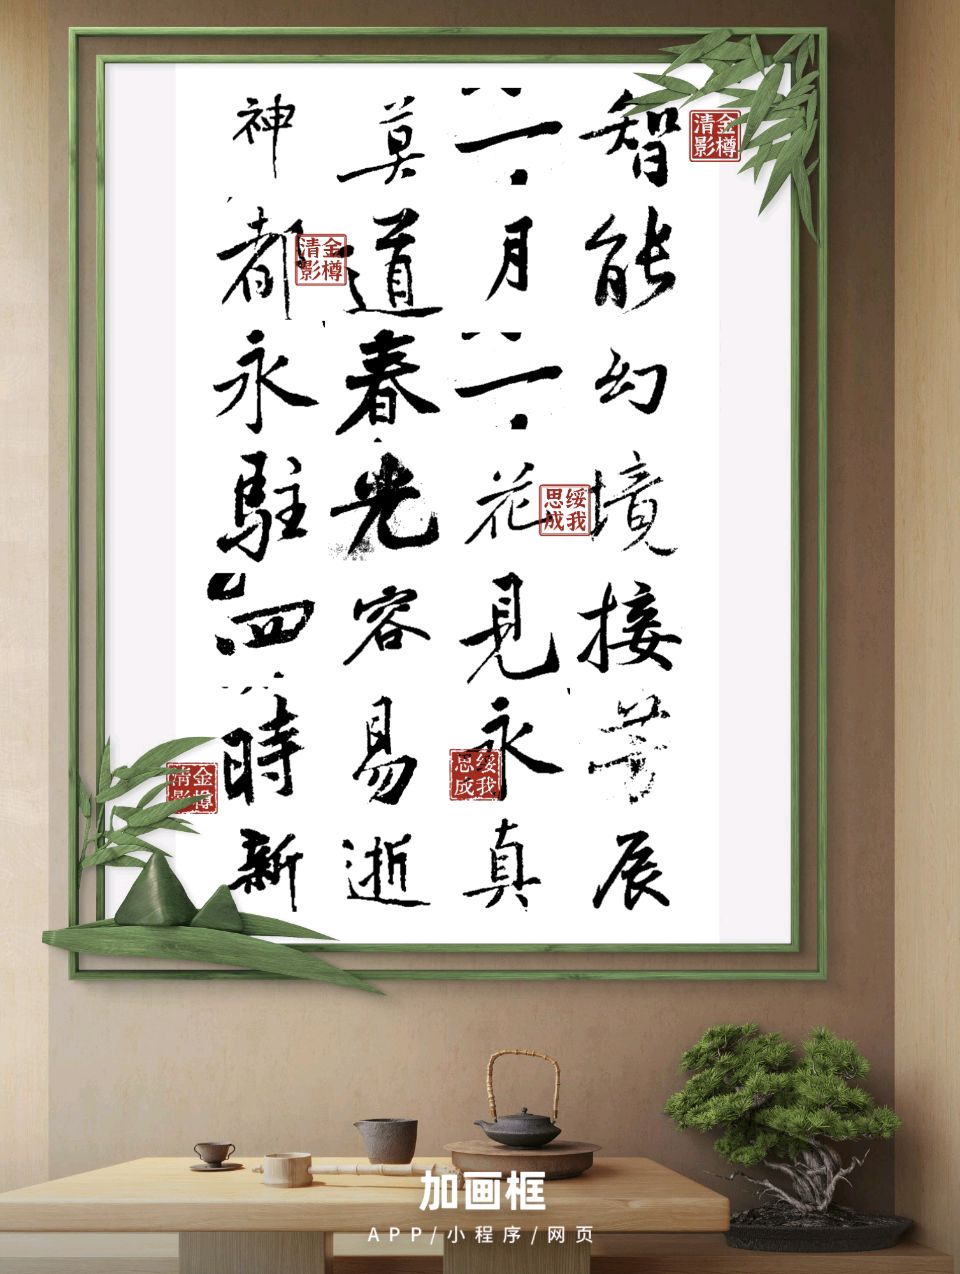 智能幻境接芳辰
一月一花見永真
莫道春光容易逝
神都永駐四時新
金樽清影
綏我思成
金樽清影
綏我思成
金樽清影
加画框
APP/小程序/网页